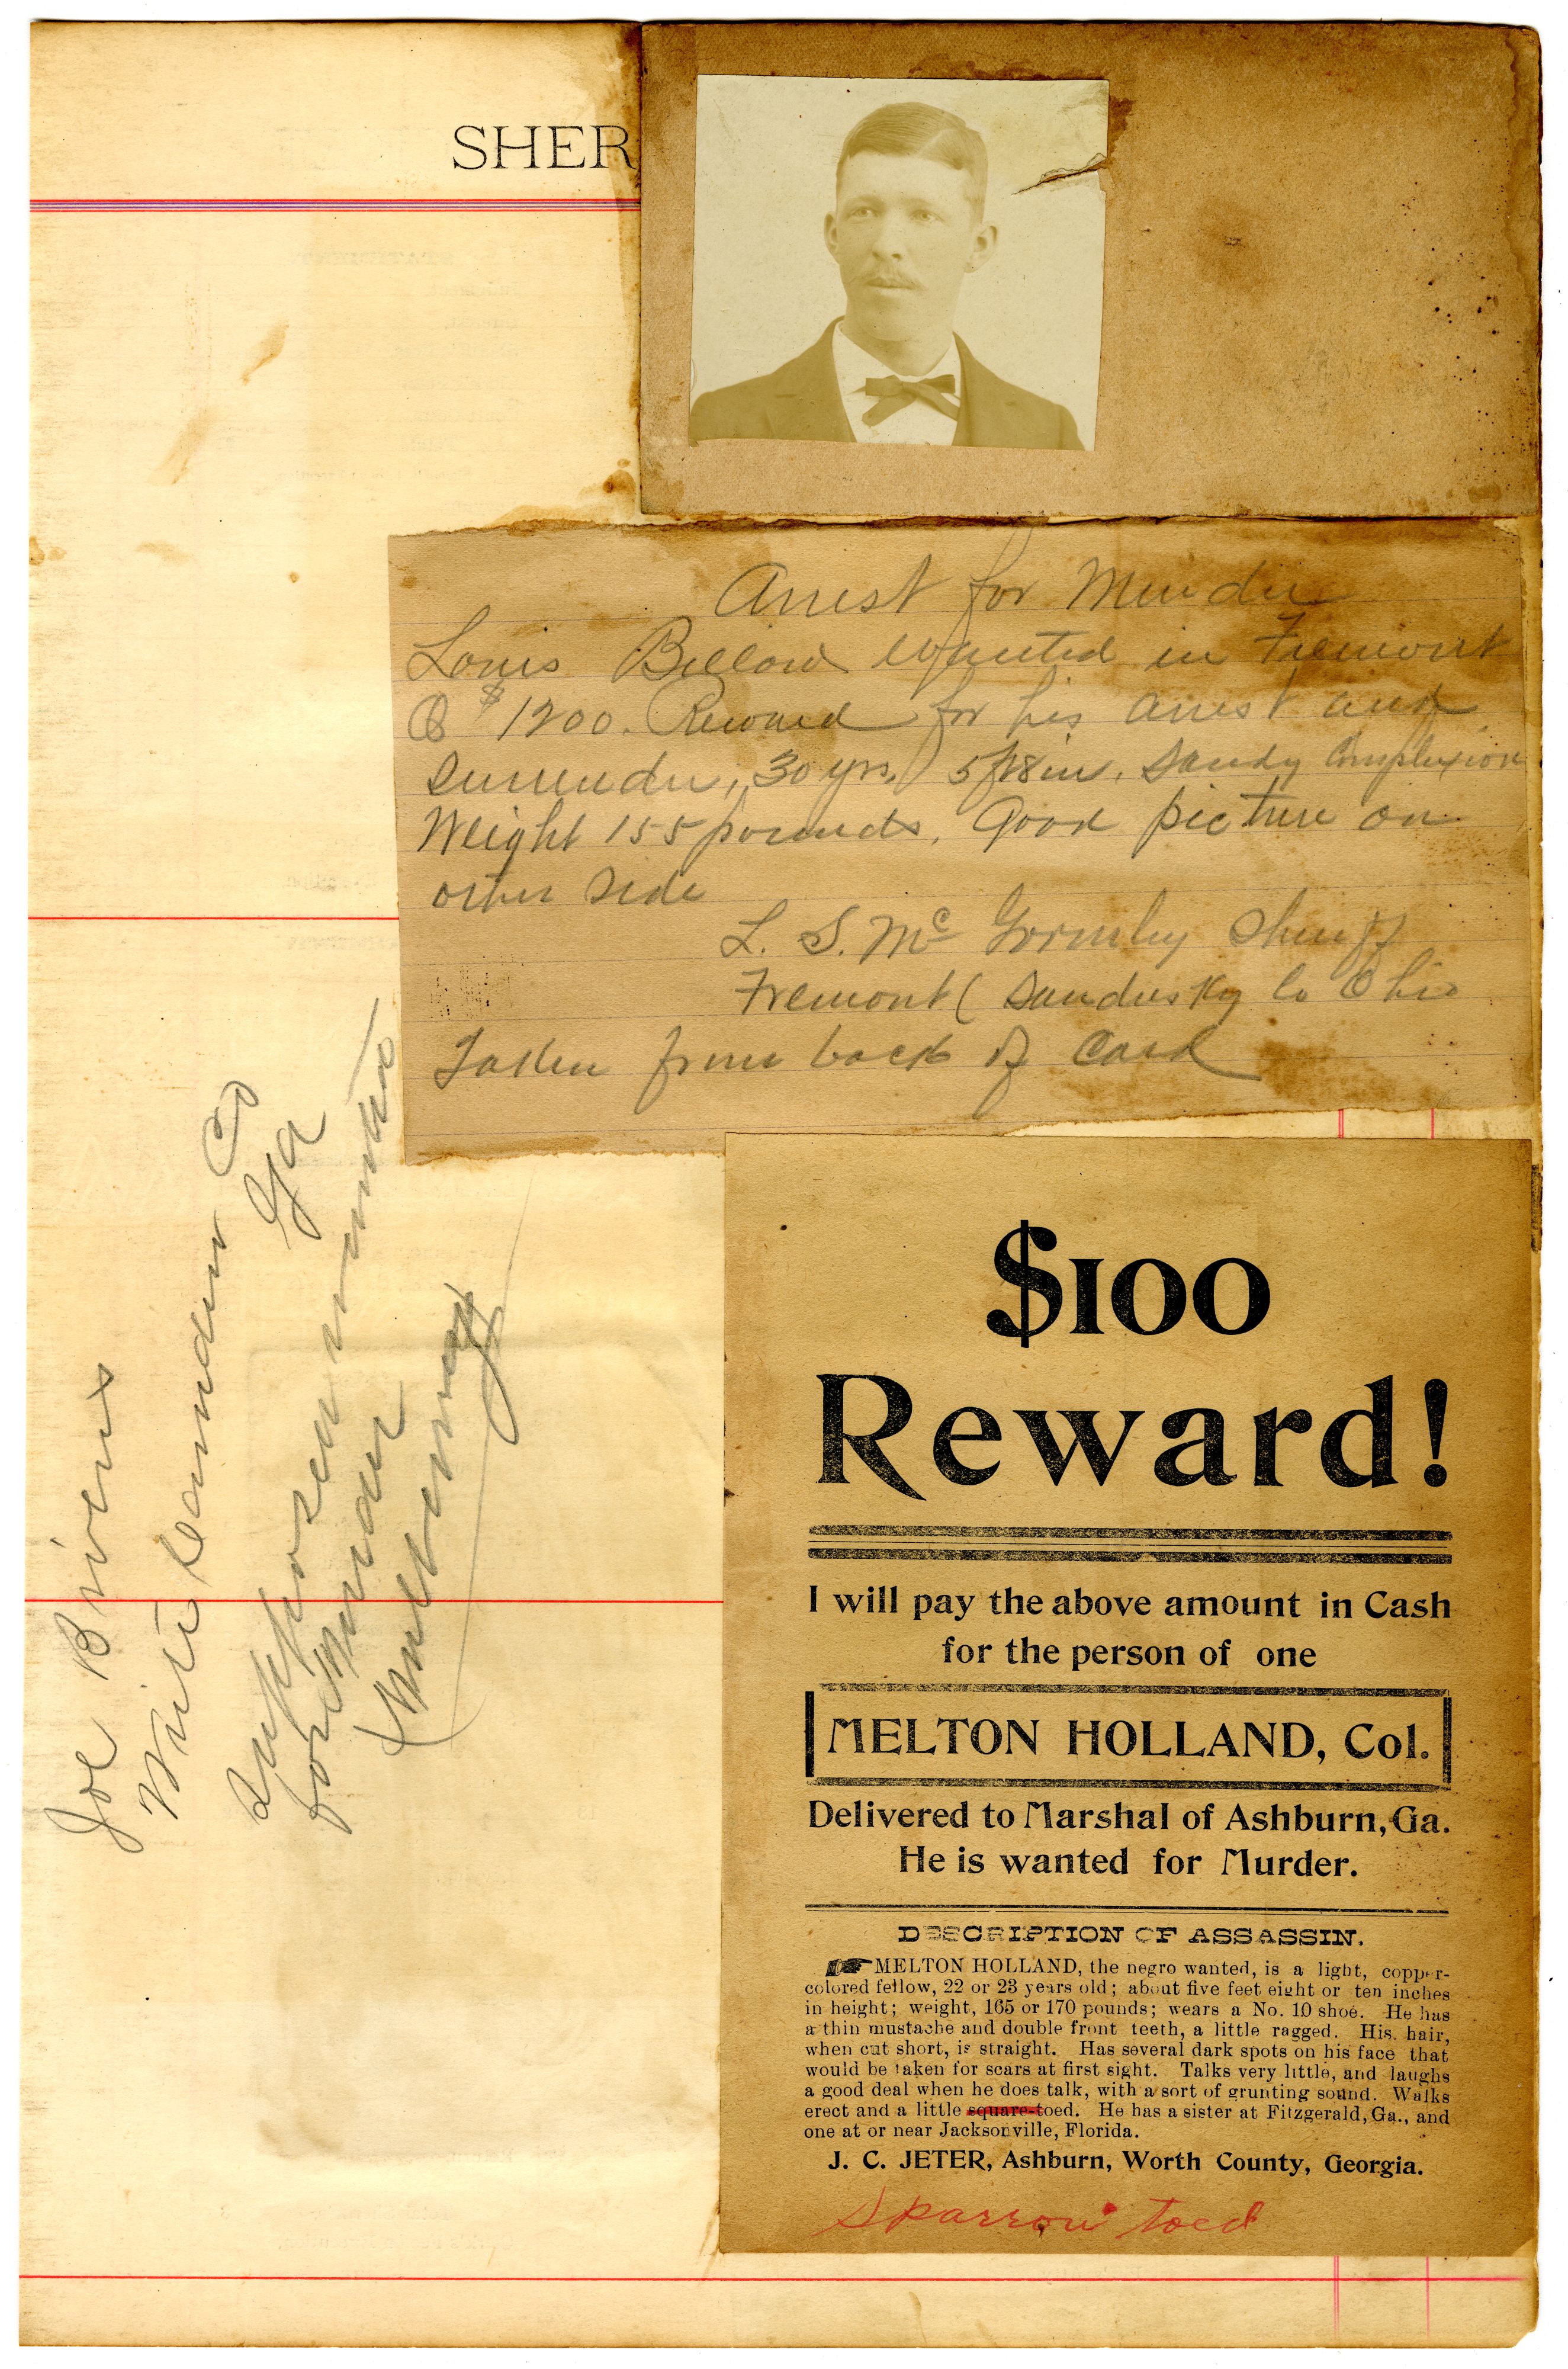 SHER
Arrest for Murder
Louis Billow wanted in Fremont
O $1200. Reward for his arrest and
Surrender, 30 yrs, 5ft 8 in, Sandy Complexion
Weight 155 pounds, Good picture on
other side
L. S. McGormley Sheriff
Fremont (Sandusky Co Ohio
Taken from back of Card
Joe Bivens
Write Camden Co
Ga
Supposed wanted
for Murder
$100
Reward!
I will pay the above amount in Cash
for the person of one
MELTON HOLLAND, Col.
Delivered to Marshal of Ashburn, Ga.
He is wanted for Murder.
DESCRIPTION OF ASSASSIN.
MELTON HOLLAND, the negro wanted, is a light, copper-
colored fellow, 22 or 23 years old; about five feet eight or ten inches
in height; weight, 165 or 170 pounds; wears a No. 10 shoe. He has
a thin mustache and double front teeth, a little ragged. His hair,
when cut short, is straight. Has several dark spots on his face that
would be taken for scars at first sight. Talks very little, and laughs
a good deal when he does talk, with a sort of grunting sound. Walks
erect and a little square-toed. He has a sister at Fitzgerald, Ga., and
one at or near Jacksonville, Florida.
J. C. JETER, Ashburn, Worth County, Georgia.
Sparrow toed